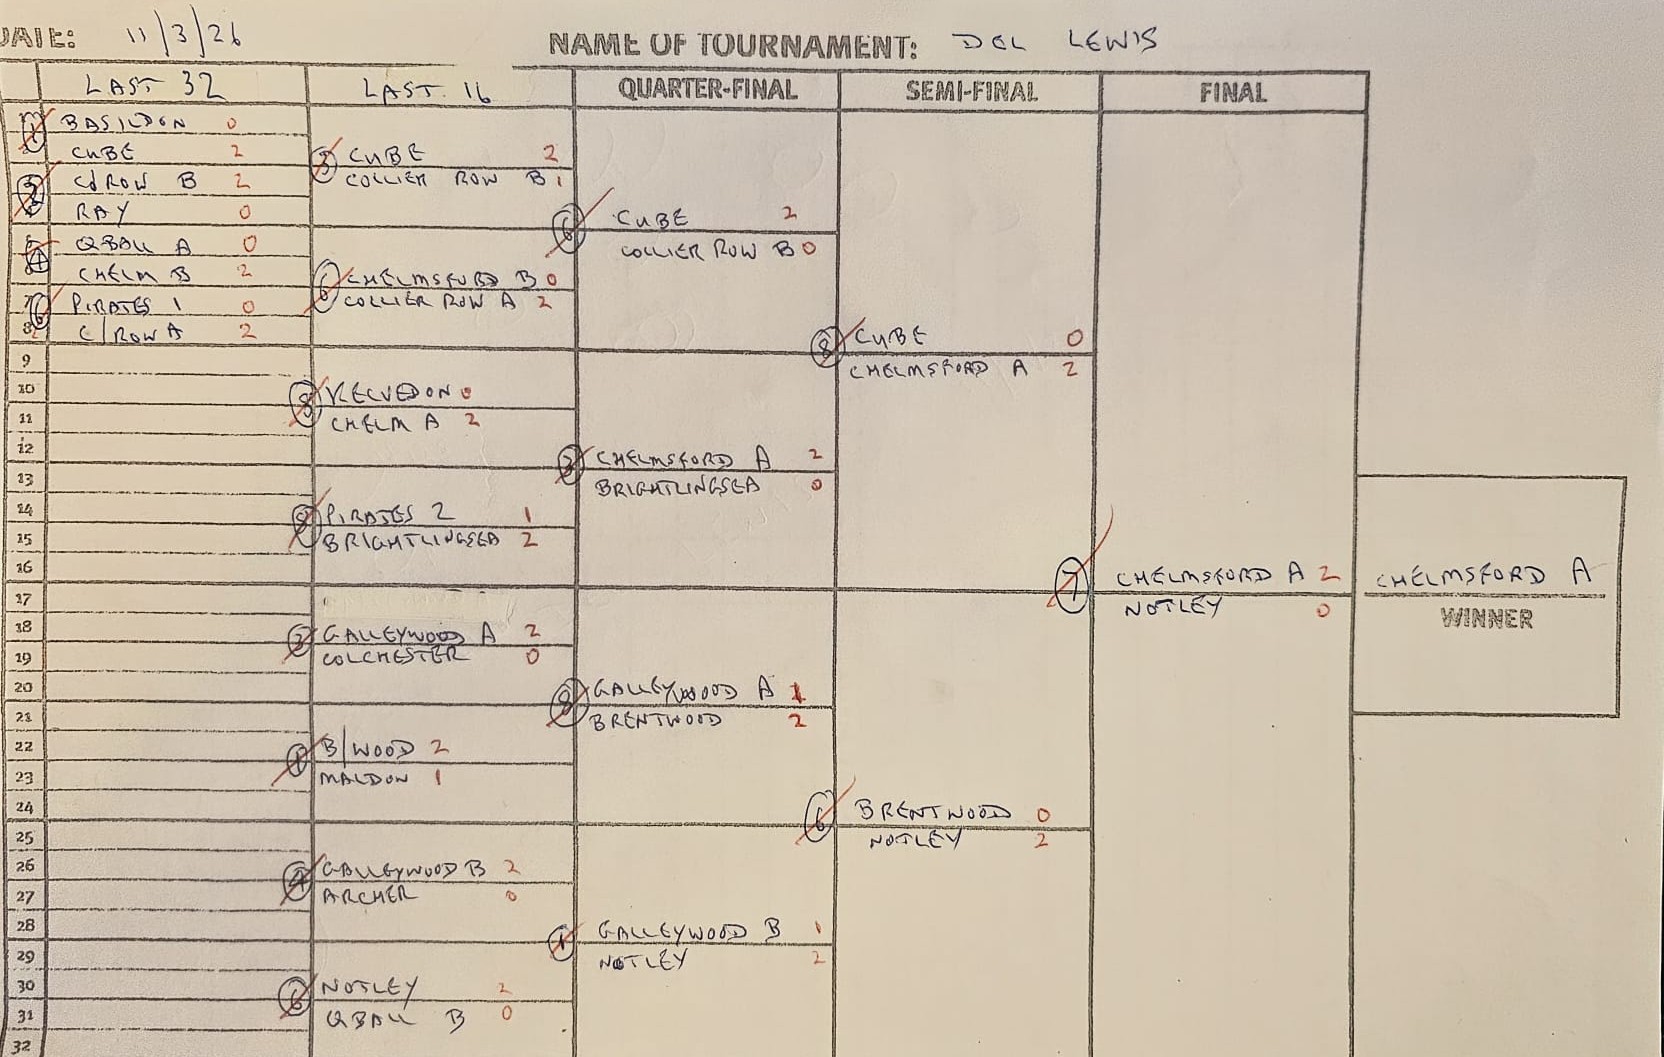 DATE: 11/3/26
NAME OF TOURNAMENT: DEL LEWIS
LAST 32
LAST 16
QUARTER-FINAL
SEMI-FINAL
FINAL
BASILDON 0
CUBE 2
C/ROW B 2
RAY 0
QBALL A 0
CHELM B 2
7 PIRATES 1 0
8 C/ROW A 2
9
10
11
12
13
14
15
16
17
18
19
20
21
22
23
24
25
26
27
28
29
30
31
32
CUBE 2
COLLIER ROW B 1
CHELMSFORD B 0
COLLIER ROW A 2
KELVEDON 0
CHELM A 2
PIRATES 2 1
BRIGHTLINGSEA 2
GALLEYWOOD A 2
COLCHESTER 0
B/WOOD 2
MALDON 1
4 GALLEYWOOD B 2
ARCHER 0
NOTLEY 2
QBALL B 0
6 CUBE 2
COLLIER ROW B 0
CHELMSFORD A 2
BRIGHTLINGSEA 0
GALLEYWOOD A 1
BRENTWOOD 2
1 GALLEYWOOD B 1
NOTLEY 2
8 CUBE 0
CHELMSFORD A 2
6 BRENTWOOD 0
NOTLEY 2
7 CHELMSFORD A 2
NOTLEY 0
CHELMSFORD A
WINNER